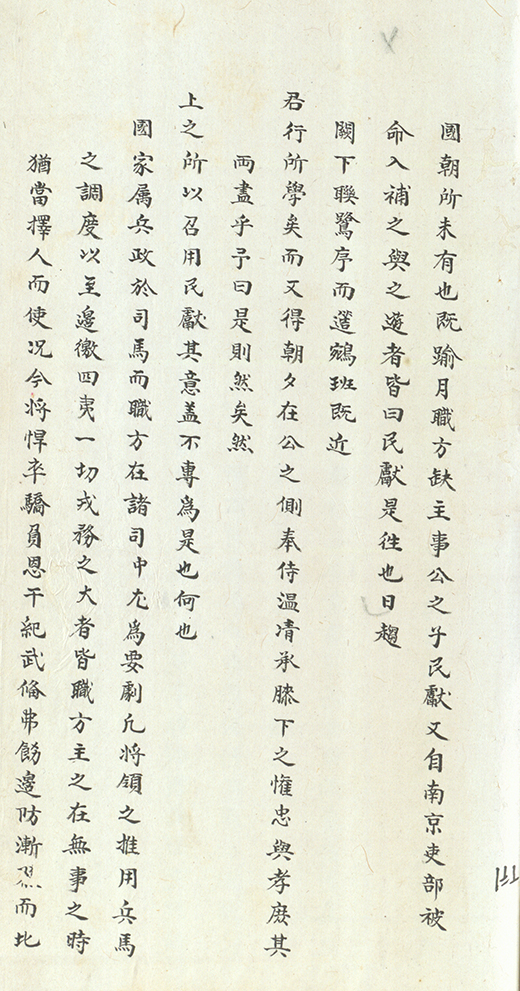 國朝所未有也既踰月職方缺主事公之子民獻又自南京吏部被
命入補之與之遊者皆曰民獻是往也日趨
闕下聯鷺序而簉鵷班既近
君行所學矣而又得朝夕在公之側奉侍温凊承膝下之懽忠與孝庶其
兩盡乎予曰是則然矣然
上之所以召用民獻其意盖不專爲是也何也
國家属兵政於司馬而職方在諸司中尤爲要劇凡將領之推用兵馬
之調度以至邊徼四夷一切戎務之大者皆職方主之在無事之時
猶當擇人而使况今將悍卒驕負恩干紀武備弗飭邊防漸而北